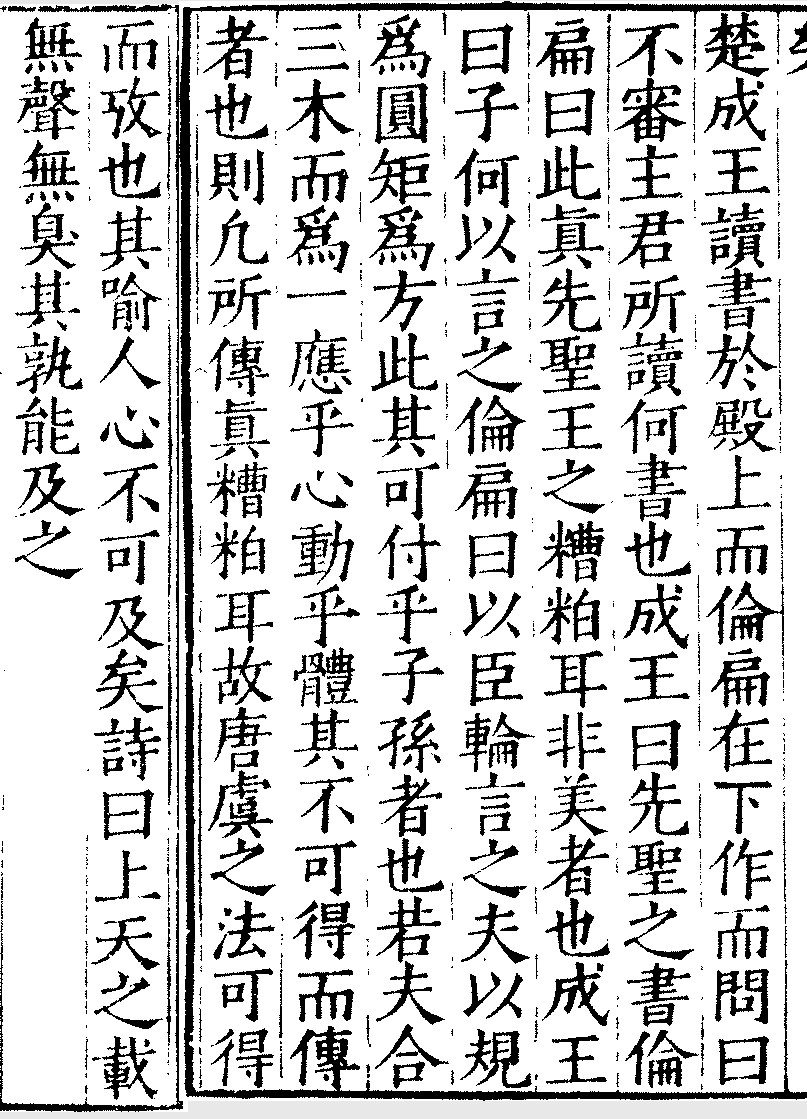 楚成王讀書於殿上而倫扁在下作而問曰
不審主君所讀何書也成王曰先聖之書倫
扁曰此真先聖王之糟粕耳非美者也成王
曰子何以言之倫扁曰以臣輪言之夫以規
爲圓矩爲方此其可付乎子孫者也若夫合
三木而爲一應乎心動乎體其不可得而傳
者也則凢所傳真糟粕耳故唐虞之法可得
而攷也其喻人心不可及矣詩曰上天之載
無聲無臭其孰能及之